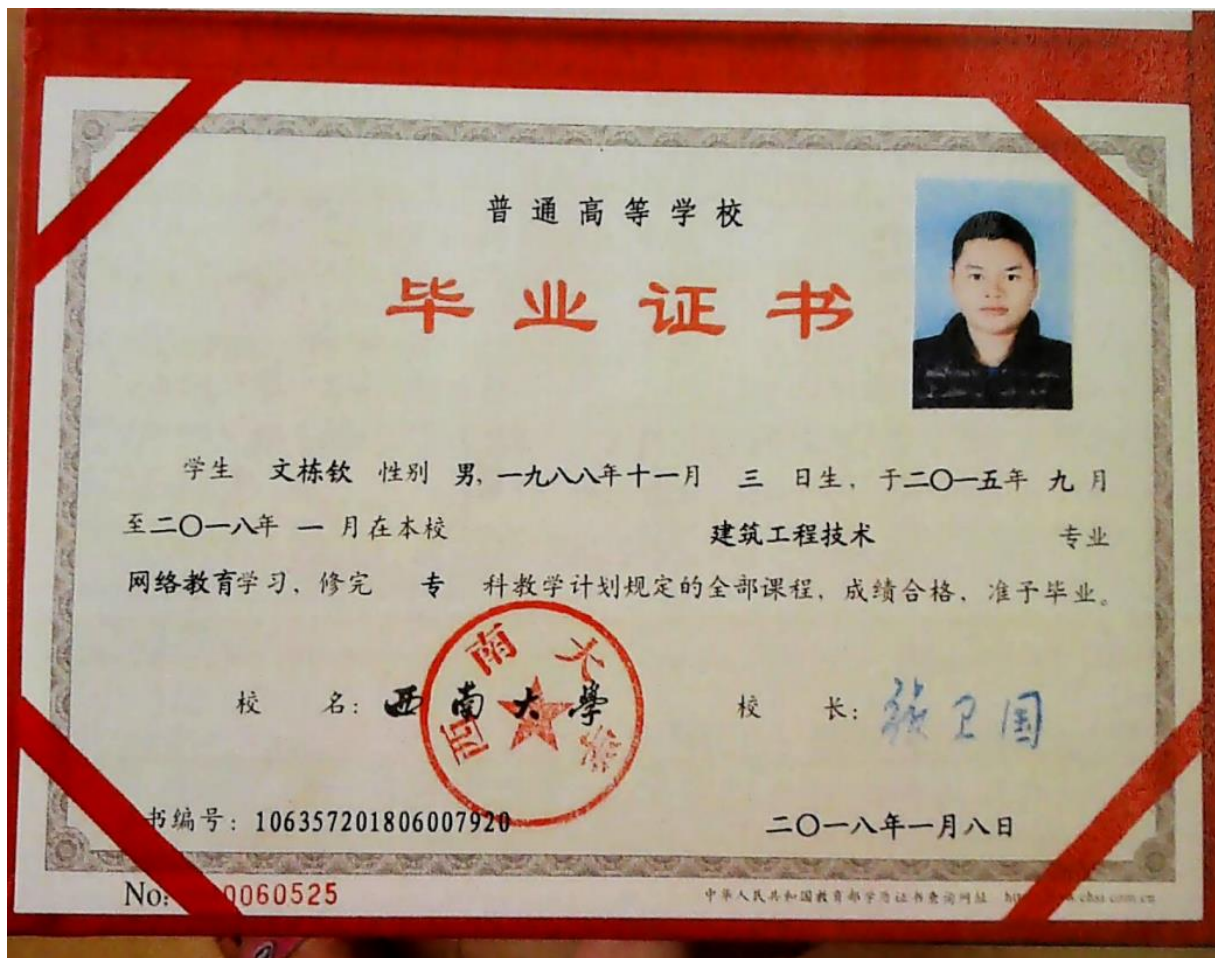 普通高等学校
毕业证书
学生 文栋钦 性别 男, 一九八八年十一月 三 日生, 于二〇一五年 九 月
至二〇一八年 一 月在本校 建筑工程技术 专业
网络教育学习, 修完 专 科教学计划规定的全部课程, 成绩合格, 准予毕业。
校 名: 西南大學
西南大学
校 长: 张卫国
书编号: 106357201806007920
二〇一八年一月八日
No: 0060525
中华人民共和国教育部学历证书查询网址